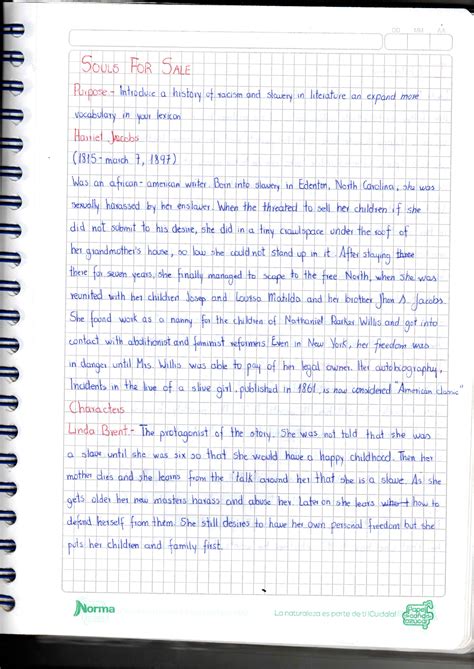 DD MM AA
SOULS FOR SALE
Purpose - Introduce a history of racism and slavery in literature an expand more
vocabulary in your lexicon
Harriet Jacobs
(1815- march 7, 1897)
Was an african-american writer. Born into slavery in Edenton, North Carolina, she was
sexually harassed by her enslaver. When the threated to sell her children if she
did not submit to his desire, she did in a tiny crawlspace under the roof of
her grandmother's house, so low she could not stand up in it. After staying three
there for seven years, she finally managed to scape to the free North, when she was
reunited with her children Josep and Louisa Matilda and her brother Jhon S. Jacobs.
She foond work as a nanny for the children of Nathaniel Parker Willis and got into
contact with abolitionist and feminist reformers. Even in New York, her freedom was
in danger until Mrs. Willis was able to pay of her legal owner. Her autobiography,
Incidents in the live of a slive girl, published in 1861, is now considered "American classic"
Characters
Linda Brent - The protagonist of the story. She was not told that she was
a slave until she was six so that she would have a happy childhood. Then her
mother dies and she learns from the "talk" around her that she is a slave. As she
gets older her new masters harass and abuse her. Later on she lears what how to
defend herself from them. She still desires to have her own personal freedom but she
puts her children and family first.
Norma
La naturaleza es parte de ti ¡Cuídala!